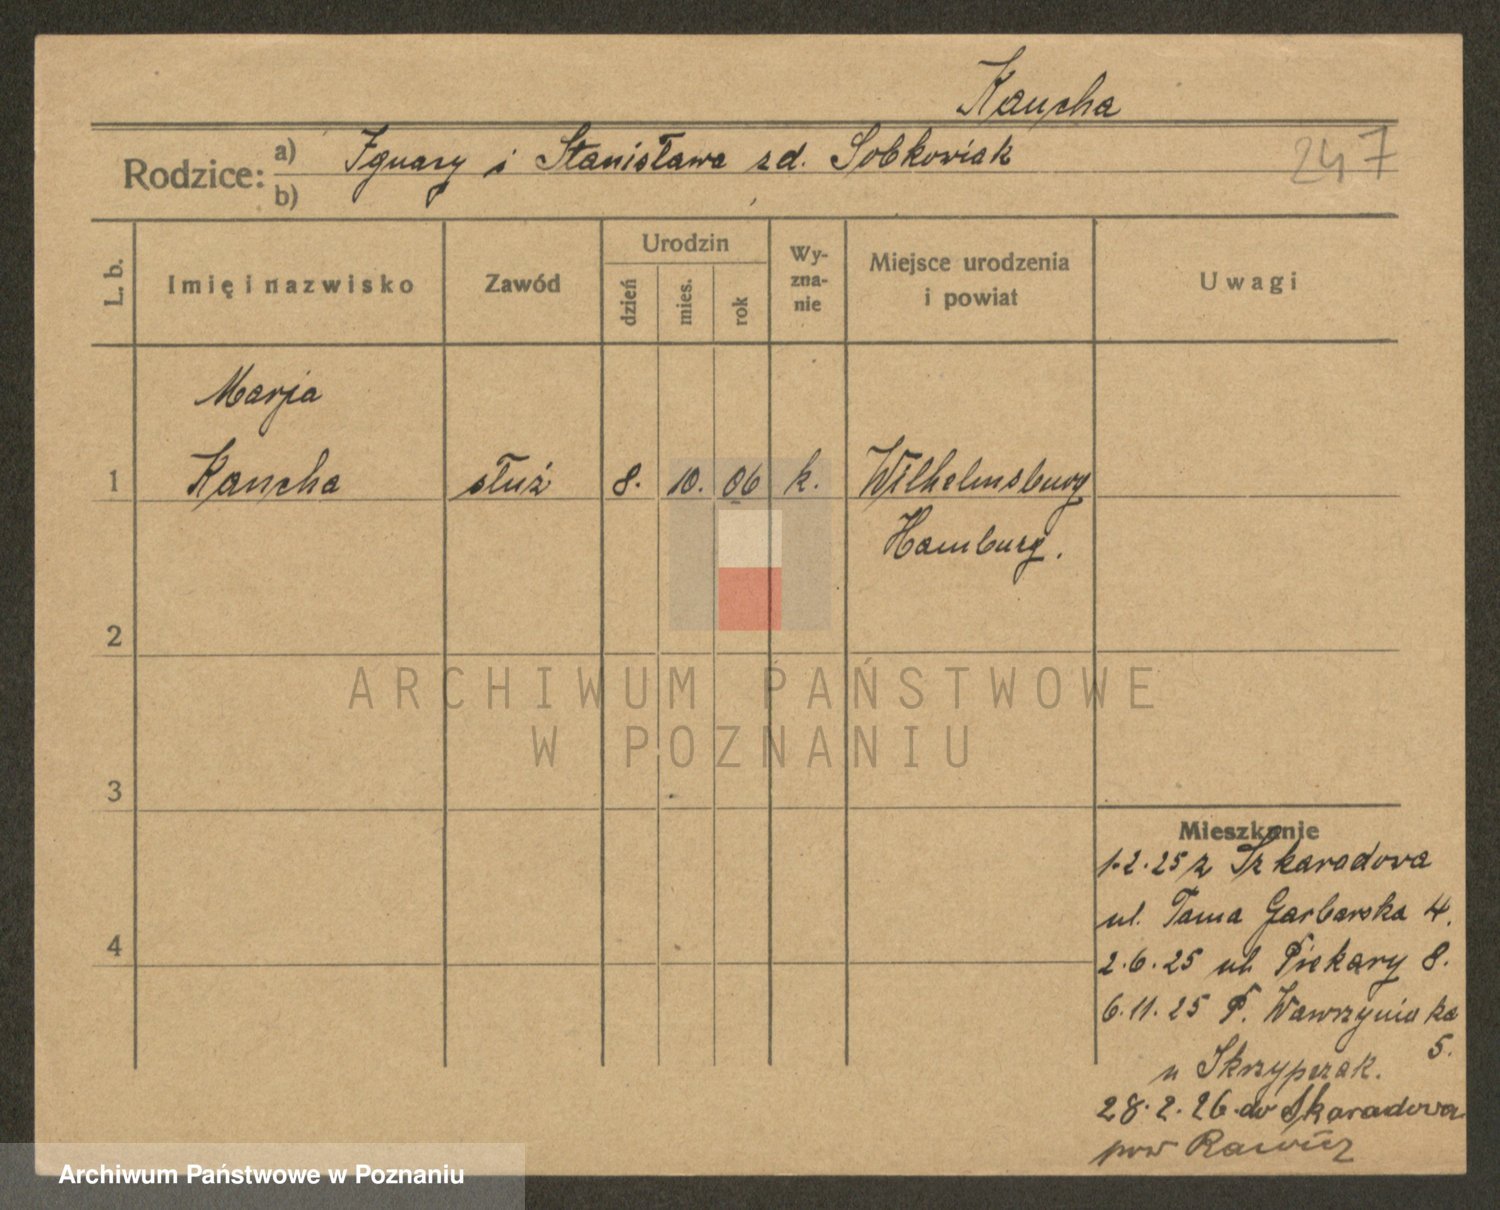 Kaucha
247
Rodzice: a) Ignacy i Stanisława zd. Sobkowiak
b)
L. b. Imię i nazwisko Zawód Urodzin dzień mies. rok Wy-zna-nie Miejsce urodzenia i powiat Uwagi
Marja
1 Kaucha służ 8. 10. 06 k. Wilhelmsburg
Hamburg.
2
3
4
Mieszkanie
1.2.25 z Szkaradowa
ul. Tama Garbarska 4.
2.6.25 ul. Piekary 8.
6.11.25 P. Wawrzyniaka
5.
u Skrzypczak.
28.2.26 do Skaradowa
pow Rawicz
ARCHIWUM PAŃSTWOWE
W POZNANIU
Archiwum Państwowe w Poznaniu